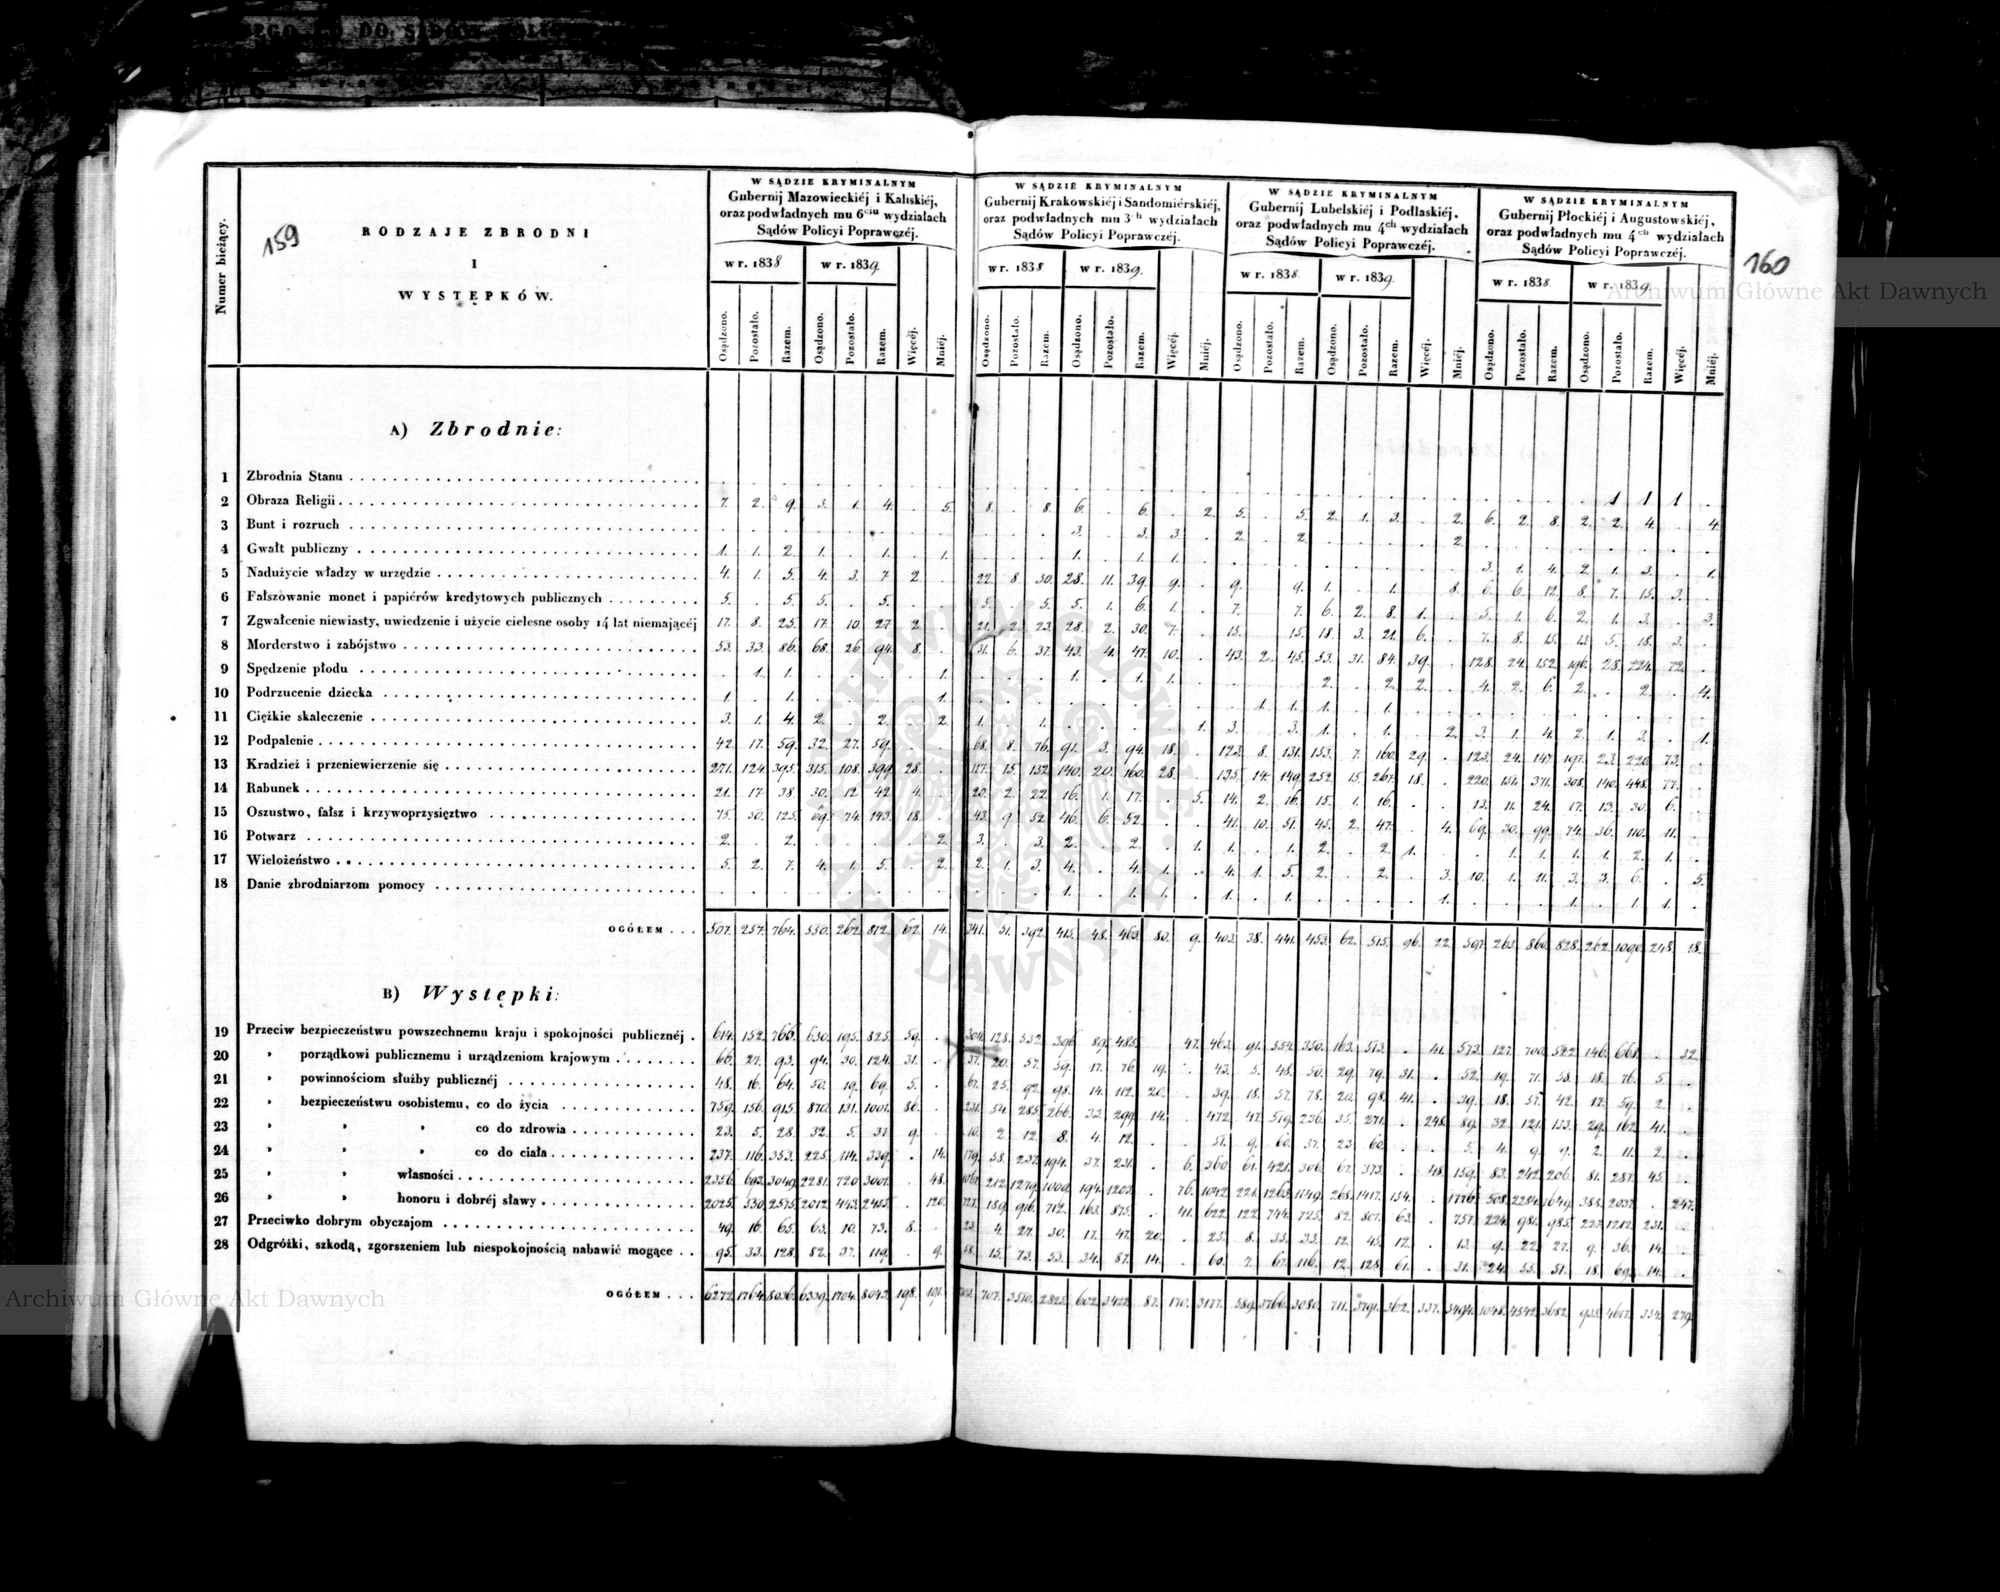 159
160
Numer bieżący.
RODZAJE ZBRODNI
I
WYSTĘPKÓW.
W SĄDZIE KRYMINALNYM
Gubernij Mazowieckiéj i Kaliskiéj,
oraz podwładnych mu 6ciu wydziałach
Sądów Policyi Poprawczéj.
w r. 1838
w r. 1839.
Osądzono. Pozostało. Razem. Osądzono. Pozostało. Razem. Więcéj. Mniéj.
W SĄDZIE KRYMINALNYM
Gubernij Krakowskiéj i Sandomiérskiéj,
oraz podwładnych mu 3ch wydziałach
Sądów Policyi Poprawczéj.
w r. 1838
w r. 1839.
Osądzono. Pozostało. Razem. Osądzono. Pozostało. Razem. Więcéj. Mniéj.
W SĄDZIE KRYMINALNYM
Gubernij Lubelskiéj i Podlaskiéj,
oraz podwładnych mu 4ch wydziałach
Sądów Policyi Poprawczéj.
w r. 1838.
w r. 1839.
Osądzono. Pozostało. Razem. Osądzono. Pozostało. Razem. Więcéj. Mniéj.
W SĄDZIE KRYMINALNYM
Gubernij Płockiéj i Augustowskiéj,
oraz podwładnych mu 4ch wydziałach
Sądów Policyi Poprawczéj.
w r. 1838.
w r. 1839.
Osądzono. Pozostało. Razem. Osądzono. Pozostało. Razem. Więcéj. Mniéj.
A) Zbrodnie:
1 Zbrodnia Stanu 1 1 1
2 Obraza Religii 7. 2. 9. 3. 1. 4. . 5. 8. . 8. 6. . 6. . 2. 5. . 5. 2. 1. 3. . 2. 6. 2. 8. 2. 2. 4. . 4.
3 Bunt i rozruch 3. . 3. 3. 2. . 2. 2.
4 Gwałt publiczny 1. 1. 2. 1. . 1. . 1. 1. . 1. 1. 3. 1. 4. 2. 1. 3. . 1.
5 Nadużycie władzy w urzędzie 4. 1. 5. 4. 3. 7. 2. . 22. 8. 30. 28. 11. 39. 9. . 9. . 9. 1. . 1. . 8. 6. 6. 12. 8. 7. 15. 3.
6 Fałszowanie monet i papiérów kredytowych publicznych 5. . 5. 5. . 5. 5. . 5. 5. 1. 6. 1. . 7. . 7. 6. 2. 8. 1. . 5. 1. 6. 2. 1. 3. . 3.
7 Zgwałcenie niewiasty, uwiedzenie i użycie cielesne osoby 14 lat niemającéj 17. 8. 25. 17. 10. 27. 2. . 21. 2. 23. 28. 2. 30. 7. . 15. . 15. 18. 3. 21. 6. . 7. 8. 15. 13. 5. 18. 3.
8 Morderstwo i zabójstwo 53. 33. 86. 68. 26. 94. 8. . 31. 6. 37. 43. 4. 47. 10. . 43. 2. 45. 53. 31. 84. 39. . 128. 24. 152. 196. 28. 224. 72.
9 Spędzenie płodu . 1. 1. . . . . 1. 1. . 1. 1. 2. . 2. 2. . 4. 2. 6. 2. . 2. . 4.
10 Podrzucenie dziecka 1. . 1. . . . . 1. . 1. 1. 1. . 1.
11 Ciężkie skaleczenie 3. 1. 4. 2. . 2. . 2. 1. . 1. . . . . 1. 3. . 3. 1. . 1. . 2. 3. 1. 4. 2. 1. 3. . 1.
12 Podpalenie 42. 17. 59. 32. 27. 59. . . 68. 8. 76. 91. 3. 94. 18. . 123. 8. 131. 153. 7. 160. 29. . 123. 24. 147. 197. 23. 220. 73.
13 Kradzież i przeniewierzenie się 271. 124. 395. 315. 108. 399. 28. . 117. 15. 132. 140. 20. 160. 28. . 135. 14. 149. 252. 15. 267. 18. . 220. 151. 371. 308. 140. 448. 77.
14 Rabunek 21. 17. 38. 30. 12. 42. 4. . 20. 2. 22. 16. 1. 17. . 5. 14. 2. 16. 15. 1. 16. . . 13. 11. 24. 17. 13. 30. 6.
15 Oszustwo, fałsz i krzywoprzysięztwo 75. 50. 125. 69. 74. 143. 18. . 43. 9. 52. 46. 6. 52. . . 41. 10. 51. 45. 2. 47. . 4. 69. 30. 99. 74. 36. 110. 11.
16 Potwarz 2. . 2. . . . . 2. 3. . 3. 2. . 2. . 1. 1. . 1. 2. . 2. 1. . . 1. 1. 1. 1. 2. 1.
17 Wielożeństwo 5. 2. 7. 4. 1. 5. . 2. 2. 1. 3. 4. . 4. 1. . 4. 1. 5. 2. . 2. . 3. 10. 1. 11. 3. 3. 6. . 5.
18 Danie zbrodniarzom pomocy 1. . 1. 1. . 1. . 1. . . . . 1. . . . 1. . 1. 1.
OGÓŁEM 507. 257. 764. 550. 262. 812. 62. 14. 341. 51. 392. 415. 48. 463. 80. 9. 403. 38. 441. 453. 62. 515. 96. 22. 597. 263. 860. 828. 262. 1090. 248. 18.
B) Występki:
19 Przeciw bezpieczeństwu powszechnemu kraju i spokojności publicznéj 614. 152. 766. 630. 195. 825. 59. . 128. 532. 396. 89. 485. . 47. 463. 91. 554. 350. 163. 513. . 41. 573. 127. 700. 522. 146. 668. . 32.
20 » porządkowi publicznemu i urządzeniom krajowym 66. 27. 93. 94. 30. 124. 31. . 37. 20. 57. 59. 17. 76. 19. . 43. 5. 48. 50. 29. 79. 31. . 52. 19. 71. 58. 18. 76. 5.
21 » powinnościom służby publicznéj 48. 16. 64. 50. 19. 69. 5. . 67. 25. 92. 98. 14. 112. 20. . 39. 18. 57. 78. 20. 98. 41. . 39. 18. 57. 42. 17. 59. 2.
22 » bezpieczeństwu osobistemu, co do życia 759. 156. 915. 870. 131. 1001. 86. . 231. 54. 285. 266. 33. 299. 14. . 472. 47. 519. 236. 35. 271. . 248. 89. 32. 121. 133. 29. 162. 41.
23 » » » co do zdrowia 23. 5. 28. 32. 5. 37. 9. . 10. 2. 12. 8. 4. 12. . . 51. 9. 60. 37. 23. 60. . . 5. 4. 9. 9. 2. 11. 2.
24 » » » co do ciała 237. 116. 353. 225. 114. 339. . 14. 179. 58. 237. 194. 37. 231. . 6. 360. 61. 421. 306. 67. 373. . 48. 159. 83. 242. 206. 81. 287. 45.
25 » » własności 2356. 693. 3049. 2281. 720. 3001. . 48. 1067. 212. 1279. 1009. 194. 1203. . 76. 1042. 221. 1263. 1149. 268. 1417. 154. . 1776. 508. 2284. 1649. 388. 2037. . 247.
26 » » honoru i dobréj sławy 2025. 550. 2575. 2012. 443. 2455. . 120. 727. 189. 916. 712. 163. 875. . 41. 622. 122. 744. 725. 82. 807. 63. . 757. 224. 981. 985. 227. 1212. 231.
27 Przeciwko dobrym obyczajom 49. 16. 65. 63. 10. 73. 8. . 23. 4. 27. 30. 17. 47. 20. . 25. 8. 33. 33. 12. 45. 12. . 13. 9. 22. 27. 9. 36. 14.
28 Odgróżki, szkodą, zgorszeniem lub niespokojnością nabawić mogące 95. 33. 128. 82. 37. 119. . 9. 58. 15. 73. 53. 34. 87. 14. . 60. 7. 67. 116. 12. 128. 61. . 31. 24. 55. 51. 18. 69. 14.
OGÓŁEM 6272. 1764. 8036. 6339. 1704. 8043. 198. 191. 707. 3510. 2825. 602. 3427. 87. 170. 3177. 589. 3766. 3080. 711. 3791. 362. 337. 3494. 1048. 4542. 3682. 935. 4617. 354. 279.
Archiwum Główne Akt Dawnych
Archiwum Główne Akt Dawnych
ARCHIWUM GŁÓWNE
AKT DAWNYCH